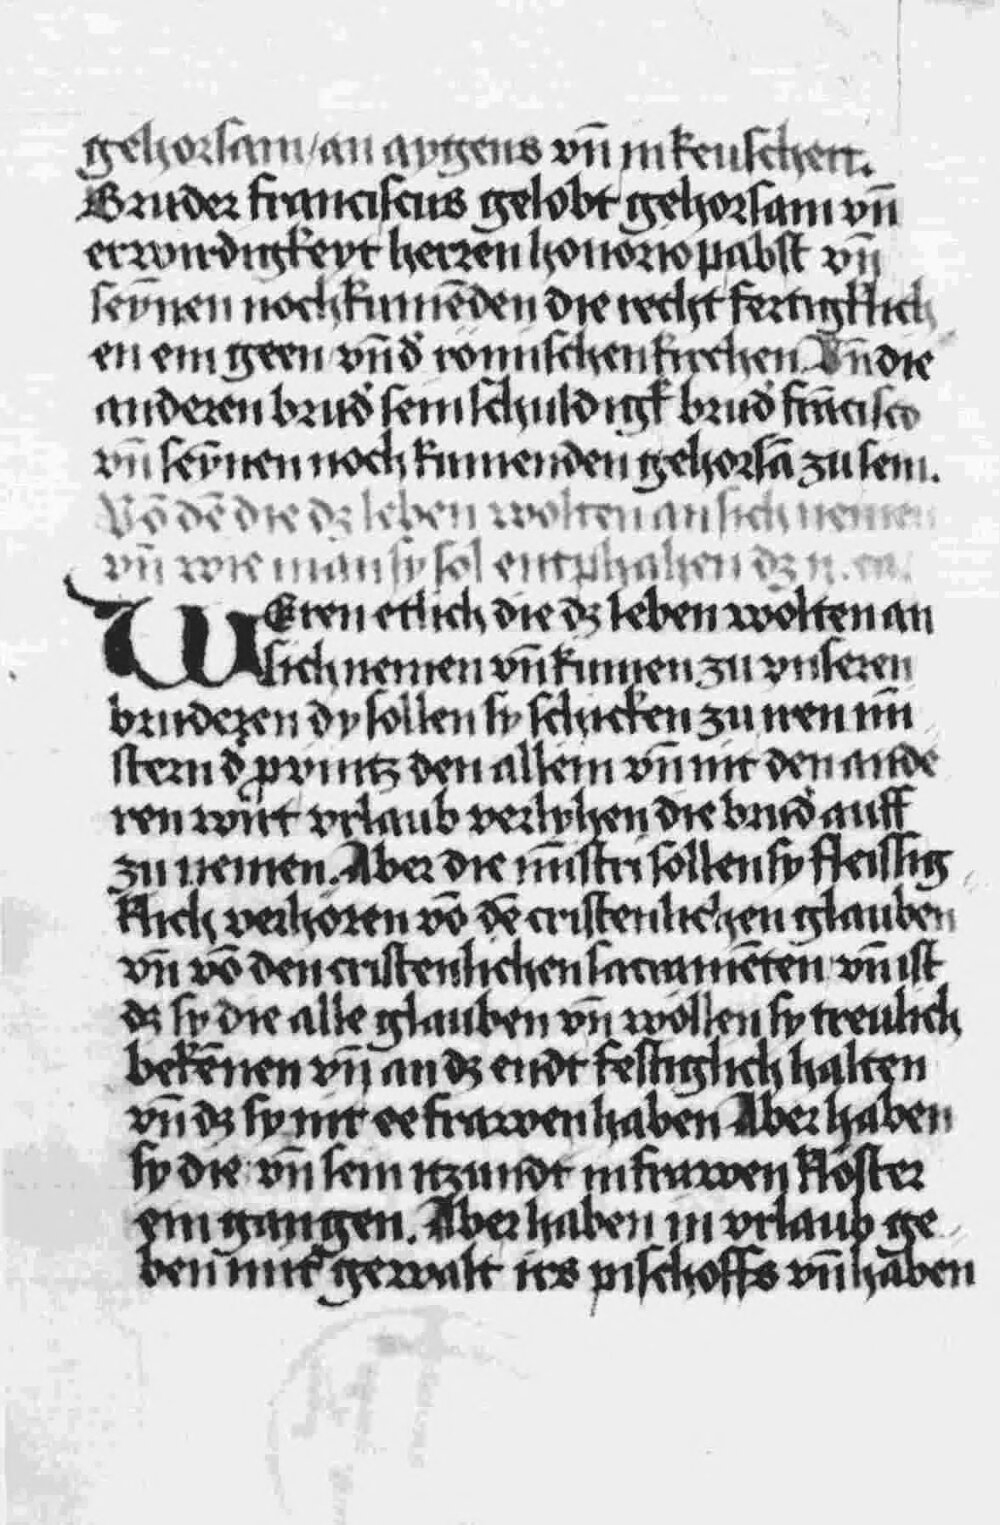 gehorsam/an aygens vn̄ in keuscheit.
Bruder franciscus gelobt gehorsam vn̄
erwirdigkeyt herren honorio pabst vn̄
seÿnen nochkumēden die recht fertigklich
en ein geen vn̄ d' römischen kirchen. Vn̄ die
anderen brud' sein schuldigk brud' frācisco
vn̄ seÿnen noch kumenden gehorsā zu sein.
Vō dē die dz leben wolten an sich nemen
vn̄ wie man sy sol entphahen dz ij. ca.
WEren etlich die dz leben wolten an
sich nemen vn̄ kumen zu vnseren
bruderen dy sollen sy schicken zu iren mi
stern d' prouintz den allein vn̄ nit den ande
ren wirt vrlaub verlyhen die brud' auff
zu nemen. Aber die mīstri sollen sy fleissig
klich verhören vō dē cristenlichen glauben
vn̄ vō den cristenlichen sacramēten vn̄ ist
dz sy die alle glauben vn̄ wöllen sy treulich
bekēnen vn̄ an dz endt festiglich halten
vn̄ dz sy nit ee frawen haben Aber haben
sy die vn̄ sein itzundt in frawen klöster
ein gangen. Aber haben in vrlaub ge
ben mit gewalt irs pischoffs vn̄ haben